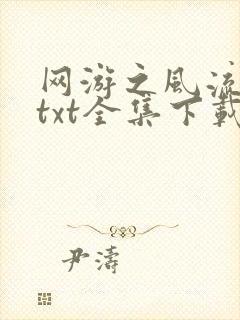 网游之风流
txt全集下载
尹濤